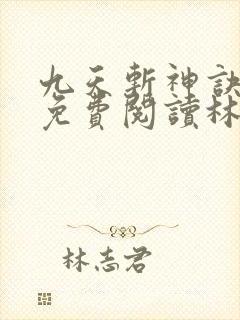 九天斬神訣
免費閱讀林
林志君